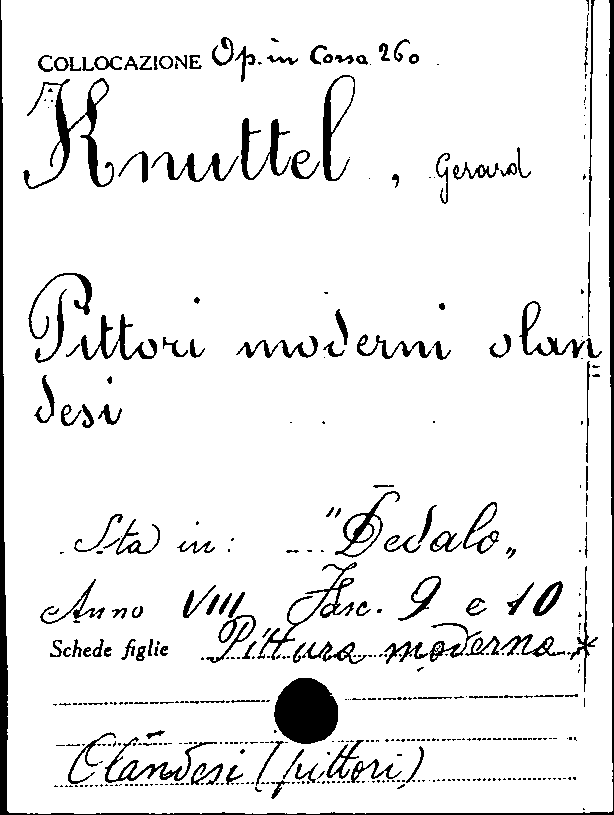 COLLOCAZIONE Op. in Corso 260
Knuttel, Gerard
Pittori moderni olan
desi
Sta in: "Dedalo„
Anno VIII Fasc. 9 e 10
Schede figlie Pittura moderna *
Olandesi (pittori)